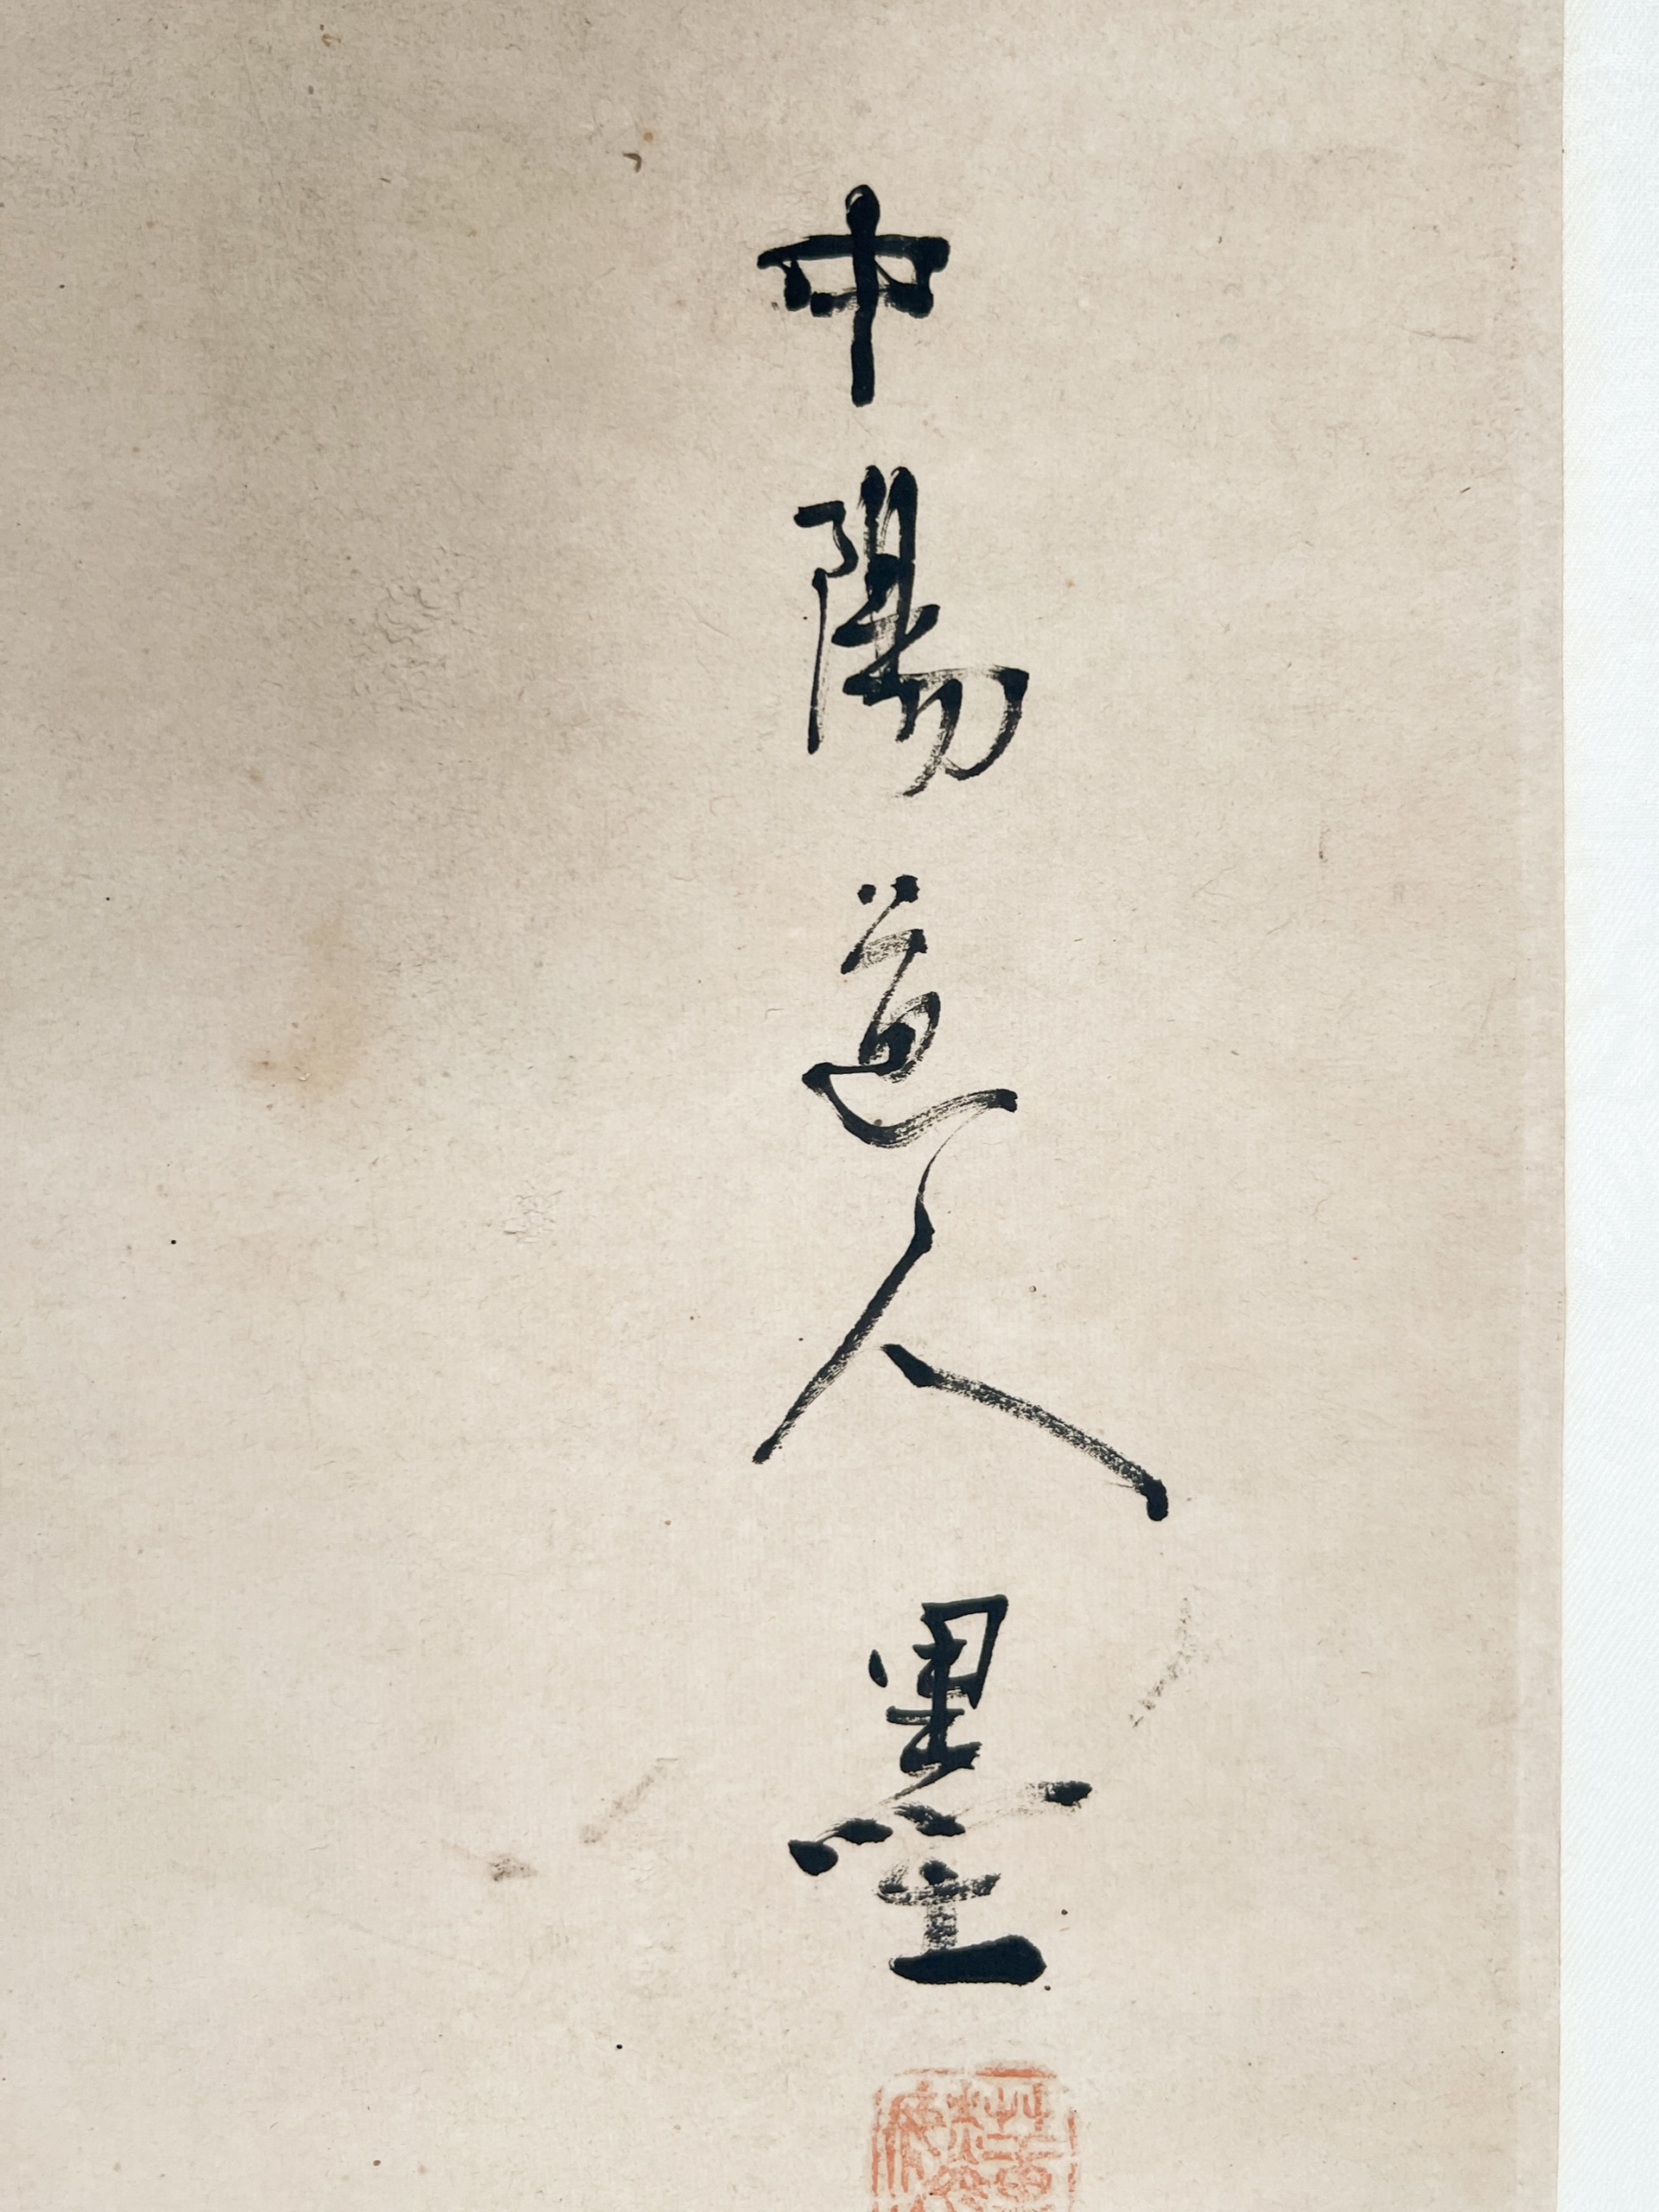 中陽道人墨